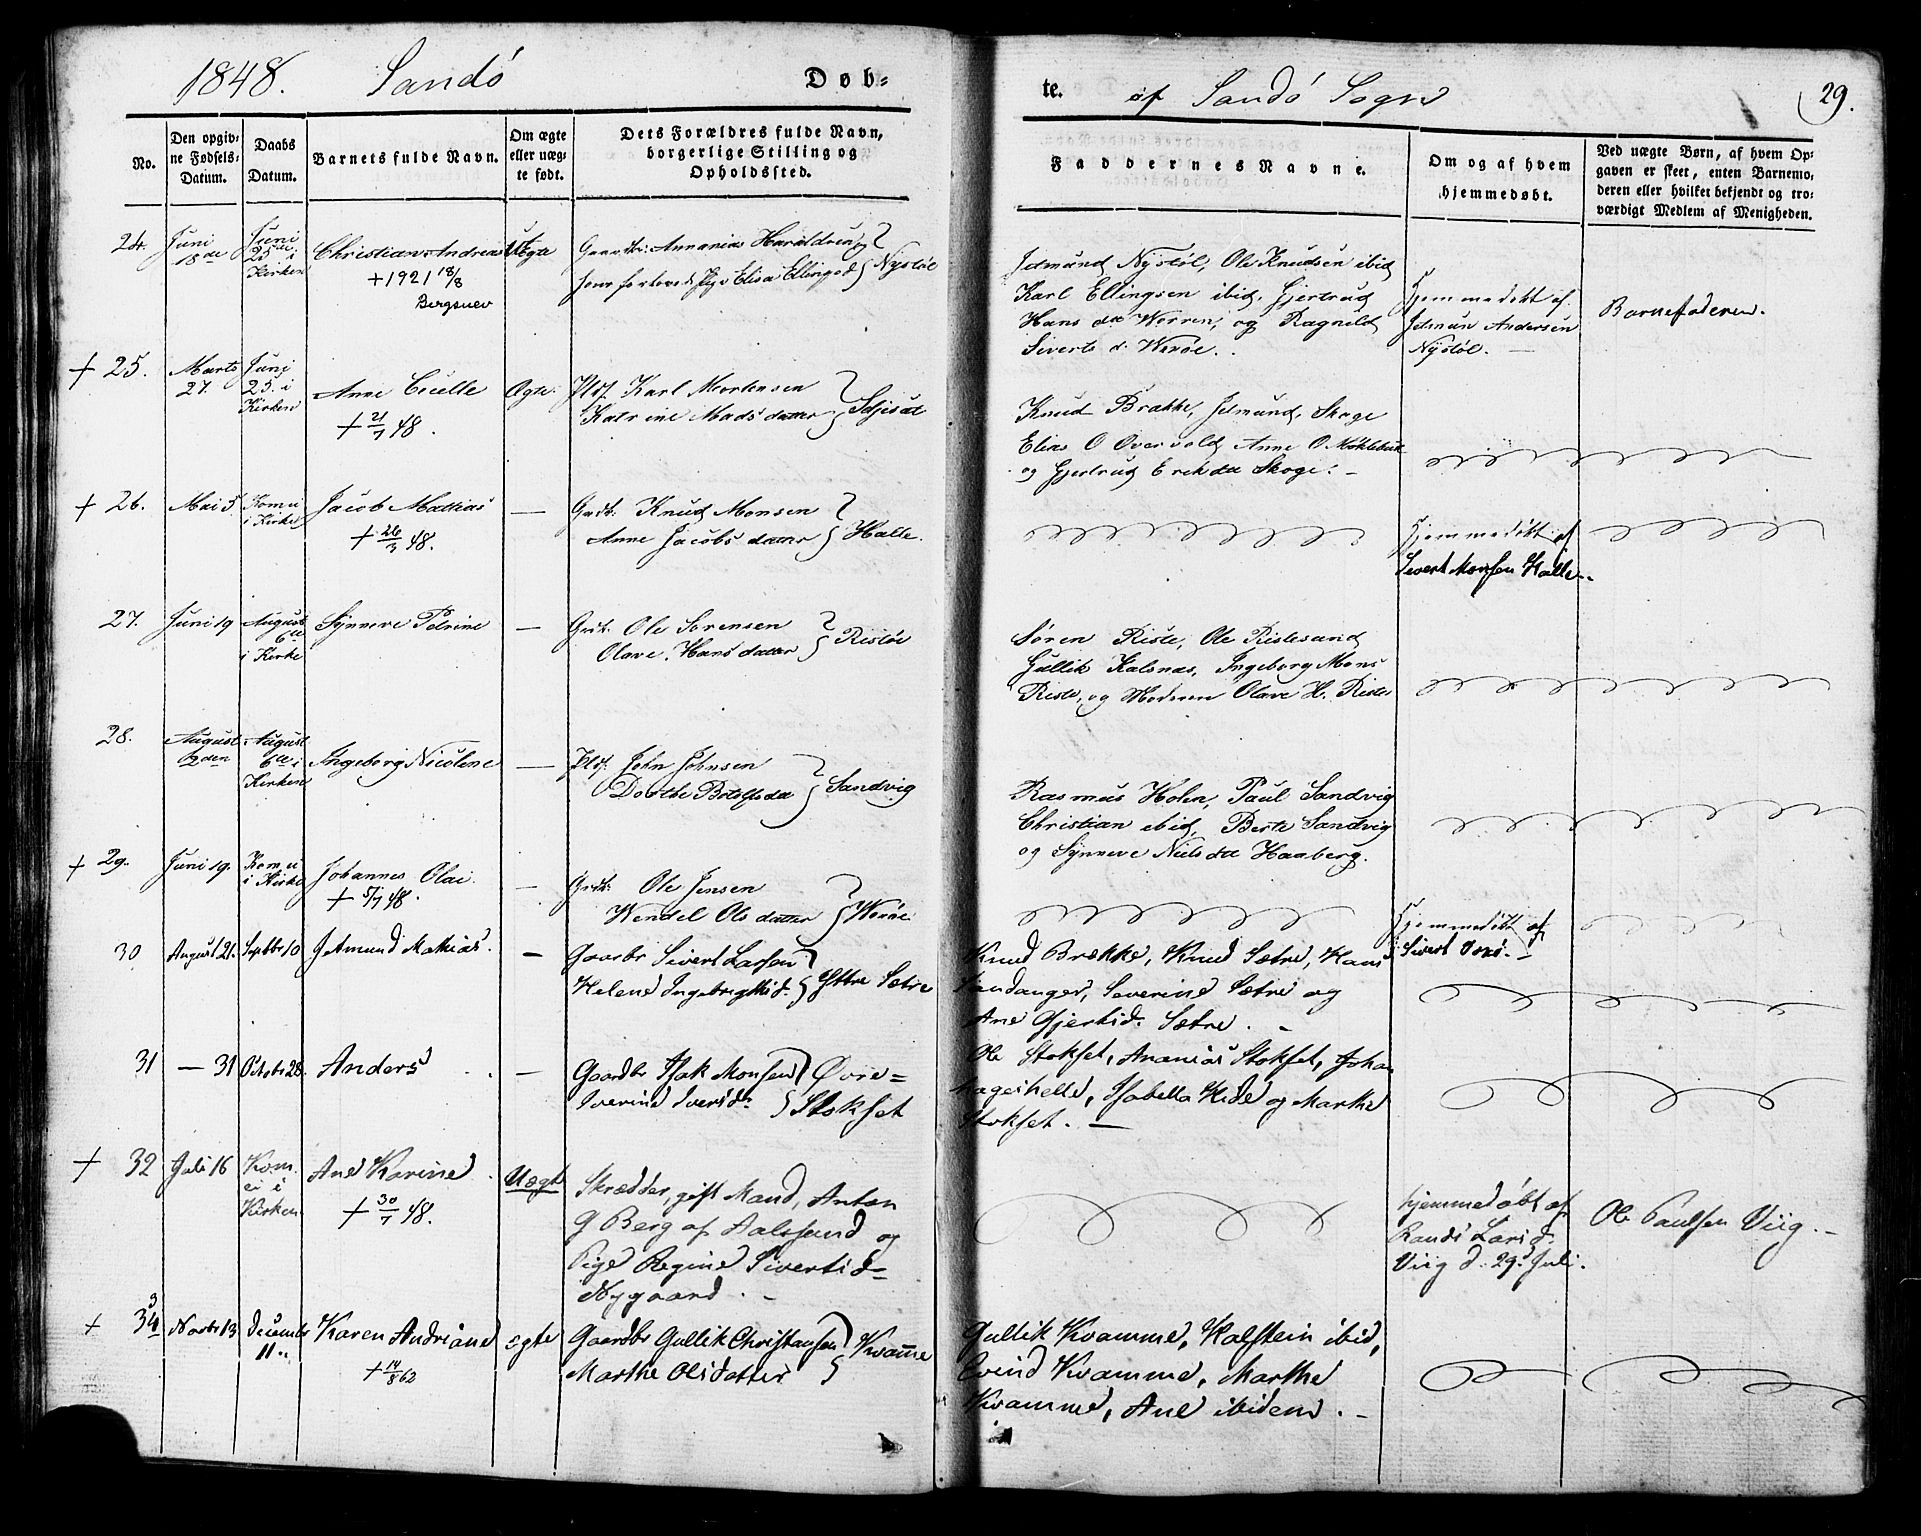 1848. Sandö Døb=
te. af Sandö Sogn 29.
No.
Den opgiv=
ne Fødsels=
Datum.
Daabs
Datum.
Barnets fulde Navn.
Om ægte
eller uæg=
te født.
Dets Forældres fulde Navn,
borgerlige Stilling og
Opholdssted.
Faddernes Navne.
Om og af hvem
hjemmedøbt.
Ved uægte Børn, af hvem Op=
gaven er skeet, enten Barnemo=
deren eller hvilket bekjendt og tro=
værdigt Medlem af Menigheden.
24.
Juni
18de
Juni
25de i
Kirken
Christian Andreas
+ 1921 18/8
Bergsnev
Uægte
Ananias Haraldsen
Elisa Ellingsd
Nystøl
Jetmund Nystöl, Ole Knudsen ibid
Karl Ellingsen ibid, Gjertrud
Hans dr Worren, og Ragnild
Siverts d. Woröe.
Hjemmedøbt af
Jetmun Andersen
Nystöl.
Barnefaderen.
+ 25.
Marts
27.
Juni
25. i
Kirken
Anne Cicille
+ 21/7 48.
Ægte.
Plds. Karl Mortensen
Katrine Madsdatter
Knud Brække, Jetmund Skoge
Elias O Overvold, Anne O Möklebust
og Gjertrud Erikdtr Skoge.
+ 26.
Mai 5
Kom ei
i Kirke
Jacob Mattias
+ 26/3 48.
—
Grdb. Knud Monsen
Anne Jacobsdatter
Halle.
Hjemmedöbt af
Sivert Monsen Halle.
27.
Juni 19
August
6te
i Kirke
Synneve Petrine
—
Grdb. Ole Sörensen
Olave Hansdatter
Ristöe
Sören Riste, Ole Ristesund
Gullik Kalsnas, Ingeborg Mons
Riste, og Moderen Olave H. Riste
28.
August
2den
August
6te i
Kirken
Ingeborg Nicoline
—
Plds. John Johnsen
Dorthe Botolfsdtr
Sandvig
Rasmus Holen, Paul Sandvig
Christian ibid, Berte Sandvig
og Synneve Nielsdtr Haaberg.
+ 29.
Juni 19.
Kom ei
i Kirke
Johannes Olai.
+ 5/7 48.
—
Grdb: Ole Jensen
Wendel Olsdatter
Woröe
Hjemmedöbt af
Sivert Vorö.
30
August 21.
Septbr 10
Jetmund Mathias
—
Gaardbr Sivert Larsen
Helene Ingebrigtsd.
Yttre Sætre
Knud Brække, Knud Sætre, Hans
Landanger, Severine Sætre og
Ane Gjertsd. Sætre.
31
— 31
October 28.
Anders
—
Gaardbr Isak Monsen
Iverine Iversdr
Øvre=
Stokset
Ole Stokset, Ananias Stokset, Johan
Hageshelle, Isabella Hide og Marthe
Stokset. —
+ 32
Juli 16
Kom
ei i
Kirken
Ane Karine
+ 30/7 48.
Uægte
Skrædder, gift Mand, Anton
G Berg af Aalesund og
Pige Regine Sivertsd=
Nygaard.
hjemmedøbt af
Randi Larsd.
Viig d. 29d Juli.
Ole Paulsen Viig.
+ 33
Novbr 13
Decembr
11.
Karen Andriane
+ 14/8 62
ægte
Gaardbr Gullik Christiansen
Marthe Olsdatter
Kvamme
Gullik Kvamme, Halstein ibid,
Evind Kvamme, Marthe
Kvamme, Ane ibidem.